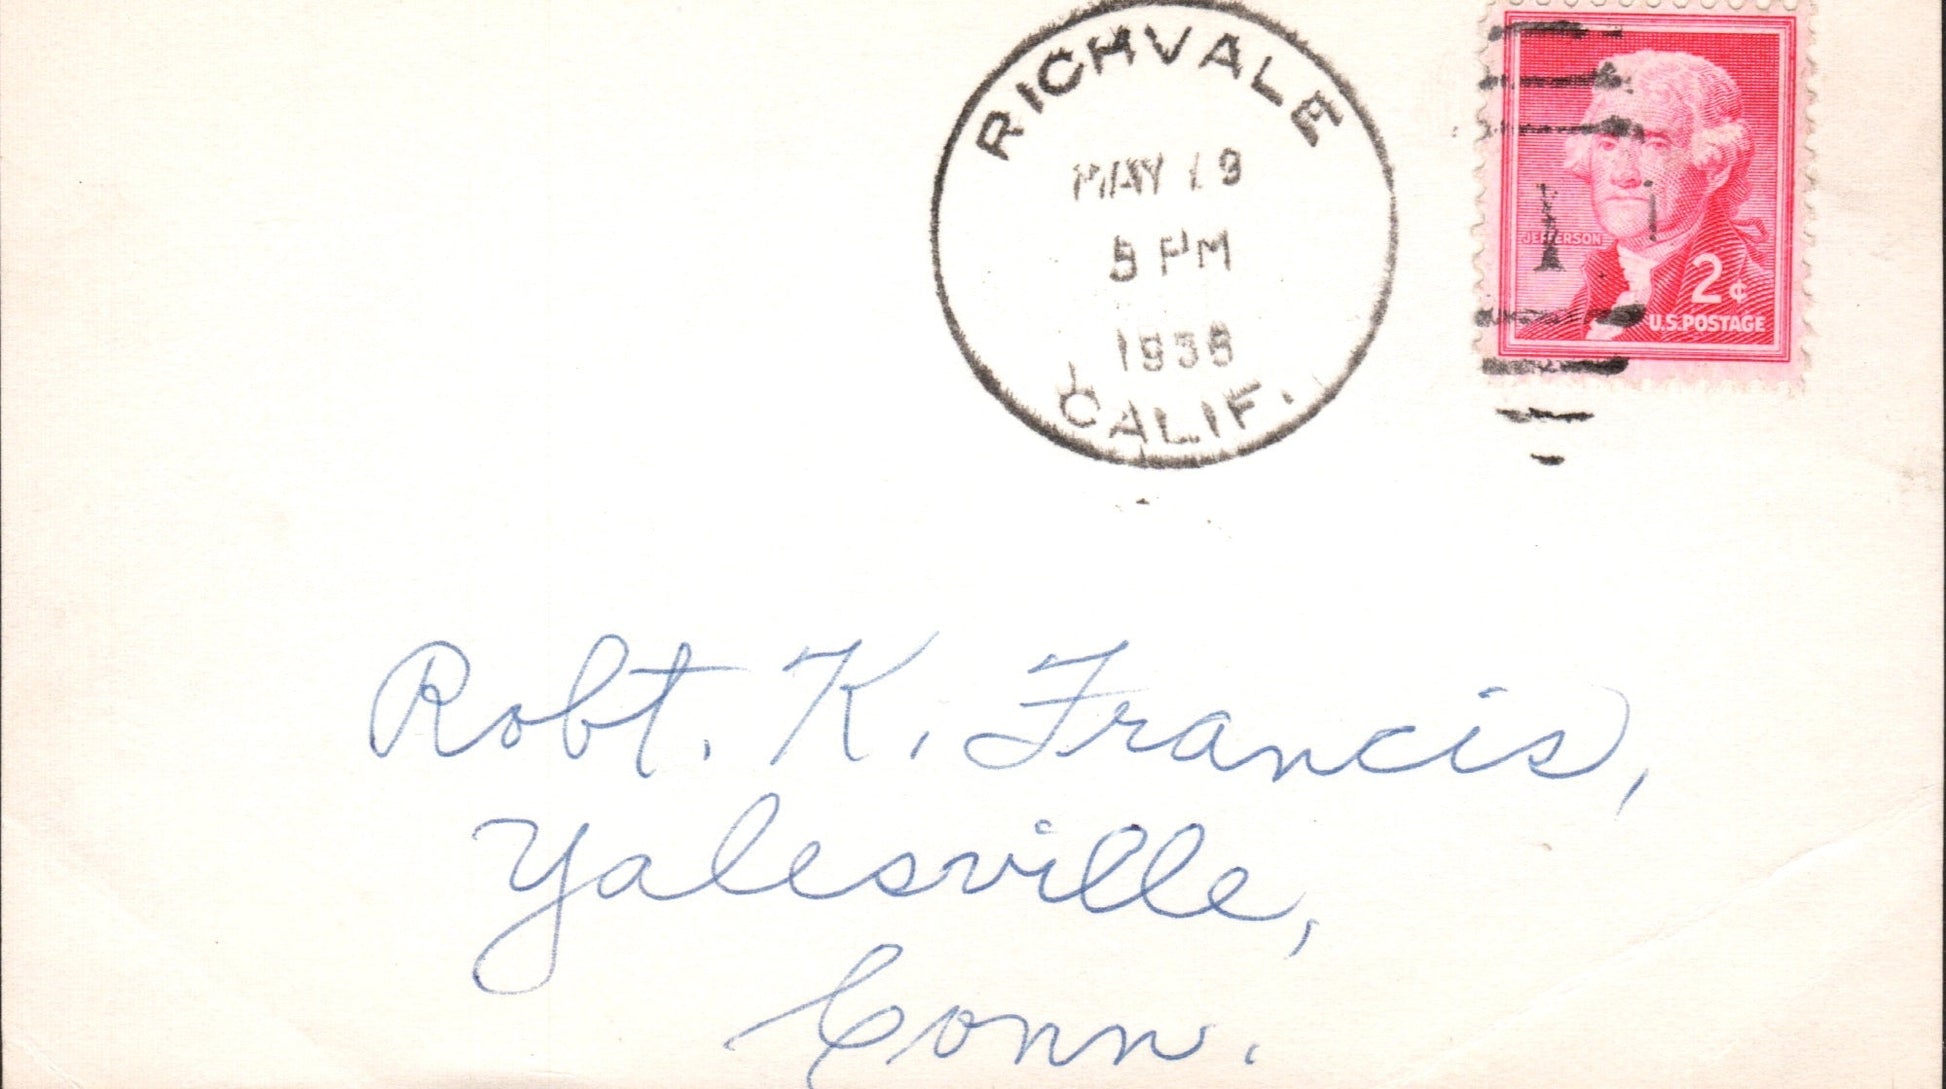 RICHVALE
MAY 19
5 PM
CALIF.
JEFFERSON
2¢
U.S.POSTAGE
Robt. K. Francis,
Yalesville,
Conn.